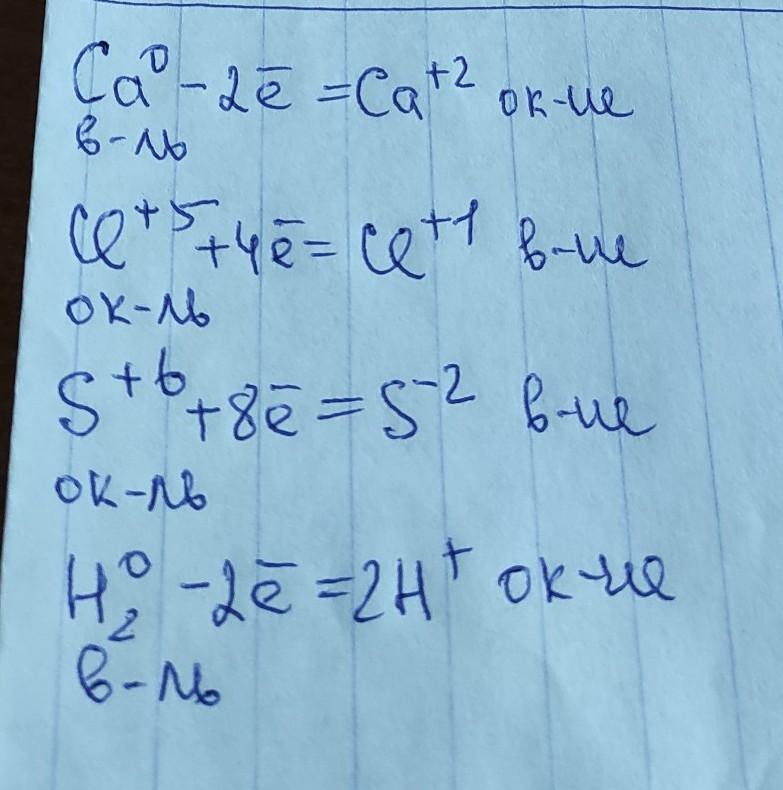 Ca⁰ - 2ē = Ca⁺² ок-ие
в-ль
Cl⁺⁵ + 4ē = Cl⁺¹ в-ие
ок-ль
S⁺⁶ + 8ē = S⁻² в-ие
ок-ль
H₂⁰ - 2ē = 2H⁺ ок-ие
в-ль